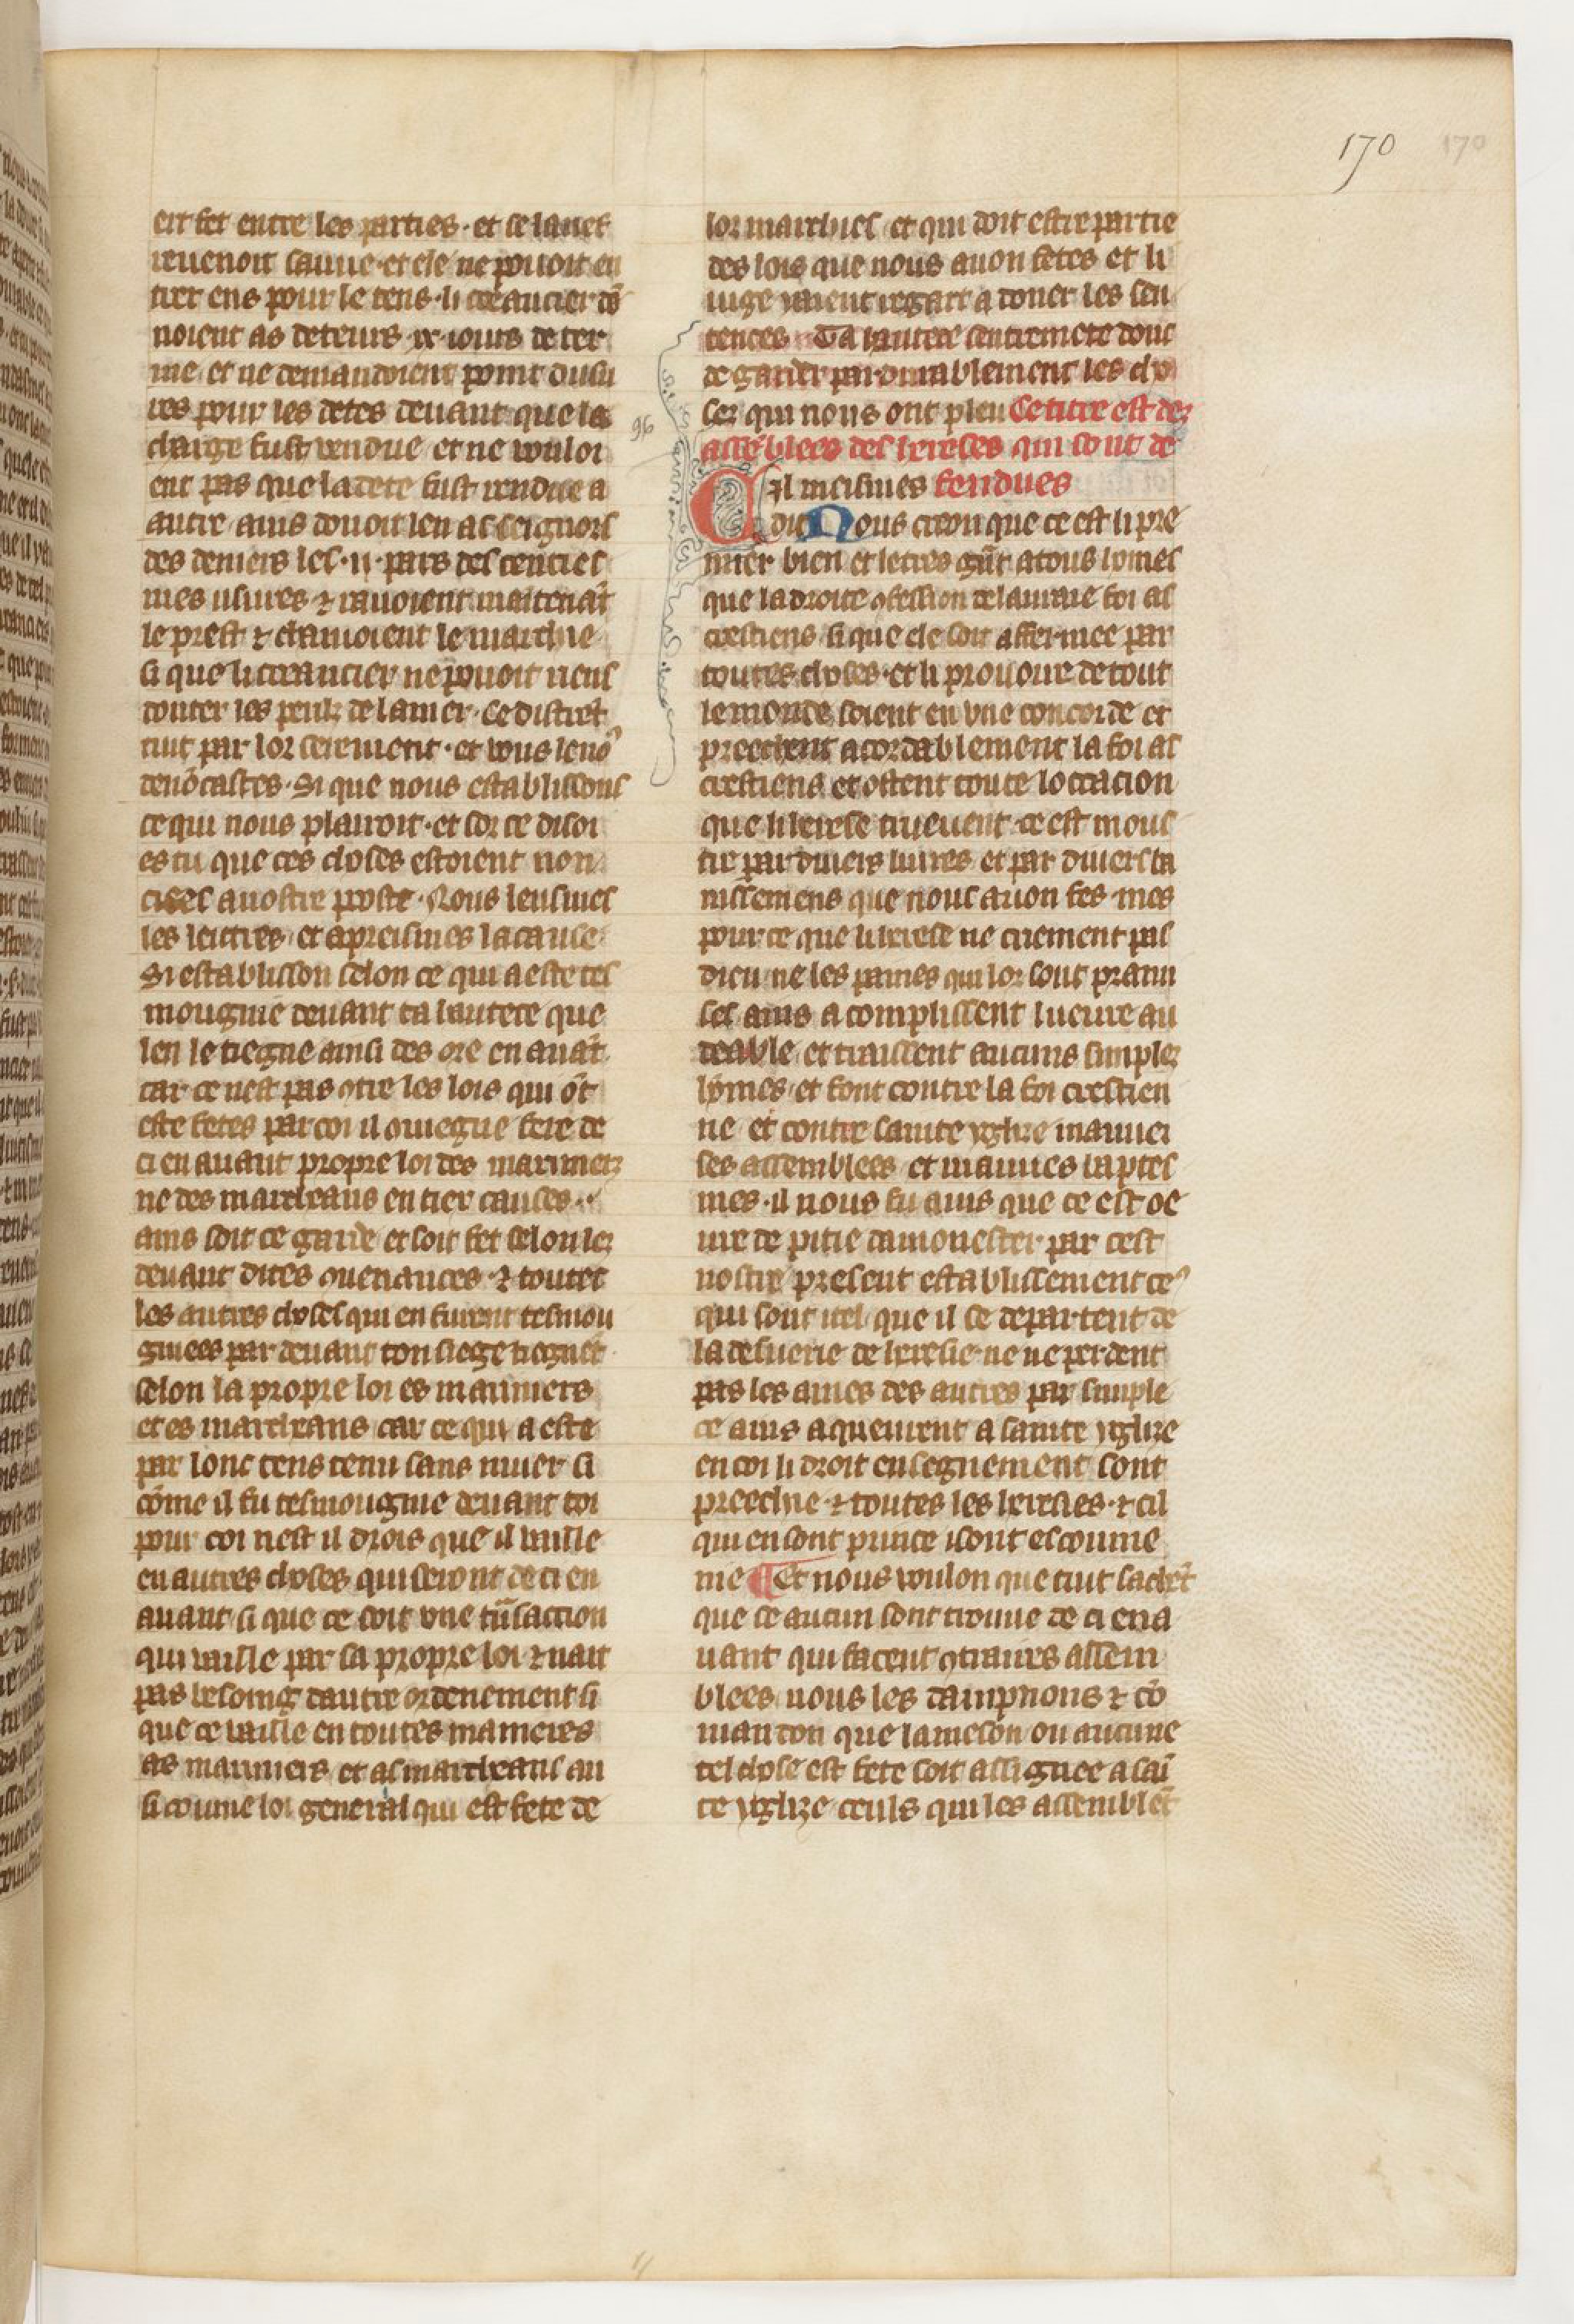 170
170
ert fet entre les parties · et se la nef
reuenoit sauue · et ele ne pouoit en
trer ens pour le tens · li creancier dō
noient as deteurs xx iours de ter
me et ne demandoient point dusu
res pour les detes deuant que la
charge fust vendue et ne vouloi
ent pas que la dete fust rendue a
autre ains donoit len as seignors
des deniers les · ii · pars des centies
mes usures ⁊ rauoient maitenāt
le prest ⁊ clamoient le marchie
si que li creancier ne pouoit riens
douter les perilz de la mer · Ce distrēt
tuit par lor serement · et vous le nō
denōcastes · Si que nous establissons
ce qui nous plairoit · et sor ce disoi
es tu que ces choses estoient non
ciees a nostre poste · Nous leusmes
les leittres et apreismes la cause
Si establisson selon ce qui a este tes
mougnie deuant ta hautece que
len le tiegne ainsi des ore en auāt
car ce nest pas ꝯtre les lois qui ōt
este fetes par coi il ꝯuiegne fere de
ci en auant propre loi des marinierz
ne des marcheans en tier causes ·
ains soit ce garde et soit fet selon lez
deuant dites ꝯuenances ⁊ toutes
les autres choses qui en furent tesmou
gniees par deuant ton siege tiegnēt
selon la propre loi es mariniers
et es marcheans car ce qui a este
par lonc tens tenu sans muer si
cōme il fu tesmougnie deuant toi
pour coi nest il drois que il vaille
en autres choses qui seront de ci en
auant si que ce soit vne trāsaction
qui vaille par sa propre loi ⁊ nait
pas besoing dautre ordenement si
que ce vaille en toutes manieres
as mariniers et as marcheans au
si coume loi general qui est fete de
lor marchies et qui doit estre partie
des lois que nous auon fetes et li
iuge y aient regart a doner les sen
tences Ta hautece sentremete donc
de garder pardurablement les cho
ses qui nous ont pleu Ce titre est dez
assēblees des hereses qui sont de
96
Cil meismes fendues
dit Nous creon que ce est li pre
mier bien et letres gn̄t a tous homes
que la droite ꝯfession de la uraie foi as
crestiens si que ele soit affermee par
toutes choses · et li prouoire de tout
le monde soient en vne concorde et
preechent acordablement la foi as
crestiens et ostent toute loccacion
que li herese truevent ce est mous
tre par diuers liures et par diuers ba
nissemens que nous auon fes · mes
pour ce que li herese ne criement pas
dieu ne les paines qui lor sont prami
ses ains acomplissent lueure au
deable et traissent aucuns simplez
homes et font contre la foi crestien
ne et contre sainte yglize mauuei
ses assemblees et mauues baptes
mes · il nous fu auis que ce est oe
ure de pitie damonester par cest
nostre present establissement ceꝰ
qui sont itel que il se departent de
la desuerie de heresie · ne ne perdent
pas les ames des autres par simple
ce ains aqueurent a sainte yglize
en coi li droit ensegnement sont
preechie · ⁊ toutes les heresies · ⁊ cil
qui en sont prince isont escoume
nie ¶ Et nous voulon que tuit sachēt
que se aucun sont trouue de ci en a
uant qui facent ꝯtraires assem
blees nous les dampnons ⁊ cō
mandon que la meson ou aucune
tel chose est fete soit assignee a sai̅
te yglize ceuls qui les assemblēt